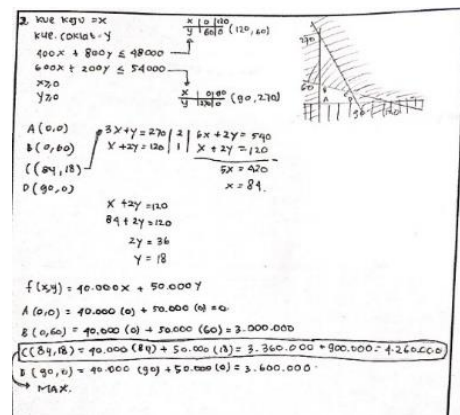 2. kue keju = x
kue coklat = y
x | 0 | 120
y | 60 | 0 (120, 60)
400x + 800y ≤ 48000
600x + 200y ≤ 54000
x | 0 | 90
y | 270 | 0 (90, 270)
x ≥ 0
y ≥ 0
270
60
A
90 120
A (0,0)
B (0,60)
C (84,18)
D (90,0)
3x + y = 270 | 2 | 6x + 2y = 540
x + 2y = 120 | 1 | x + 2y = 120
5x = 420
x = 84.
x + 2y = 120
84 + 2y = 120
2y = 36
y = 18
f(x,y) = 40.000x + 50.000y
A (0,0) = 40.000 (0) + 50.000 (0) = 0
B (0,60) = 40.000 (0) + 50.000 (60) = 3.000.000
C (84,18) = 40.000 (84) + 50.000 (18) = 3.360.000 + 900.000 = 4.260.000
D (90,0) = 40.000 (90) + 50.000 (0) = 3.600.000.
MAX.